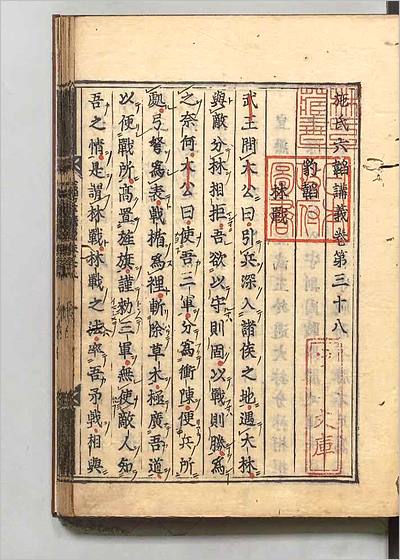 施氏六韜講義巻第三十八
豹韜
林戰
武王問大公曰引兵深入諸侯之地遇大林
與敵分林相拒吾欲以守則固以戰則勝為
之奈何大公曰使吾三軍分為衝陳便兵所
處弓弩為表戟楯為裡斬除草木極廣吾道
以便戰所高置旌旗謹勑三軍無使敵人知
吾之情是謂林戰林戰之法率吾矛戟相與
文庫